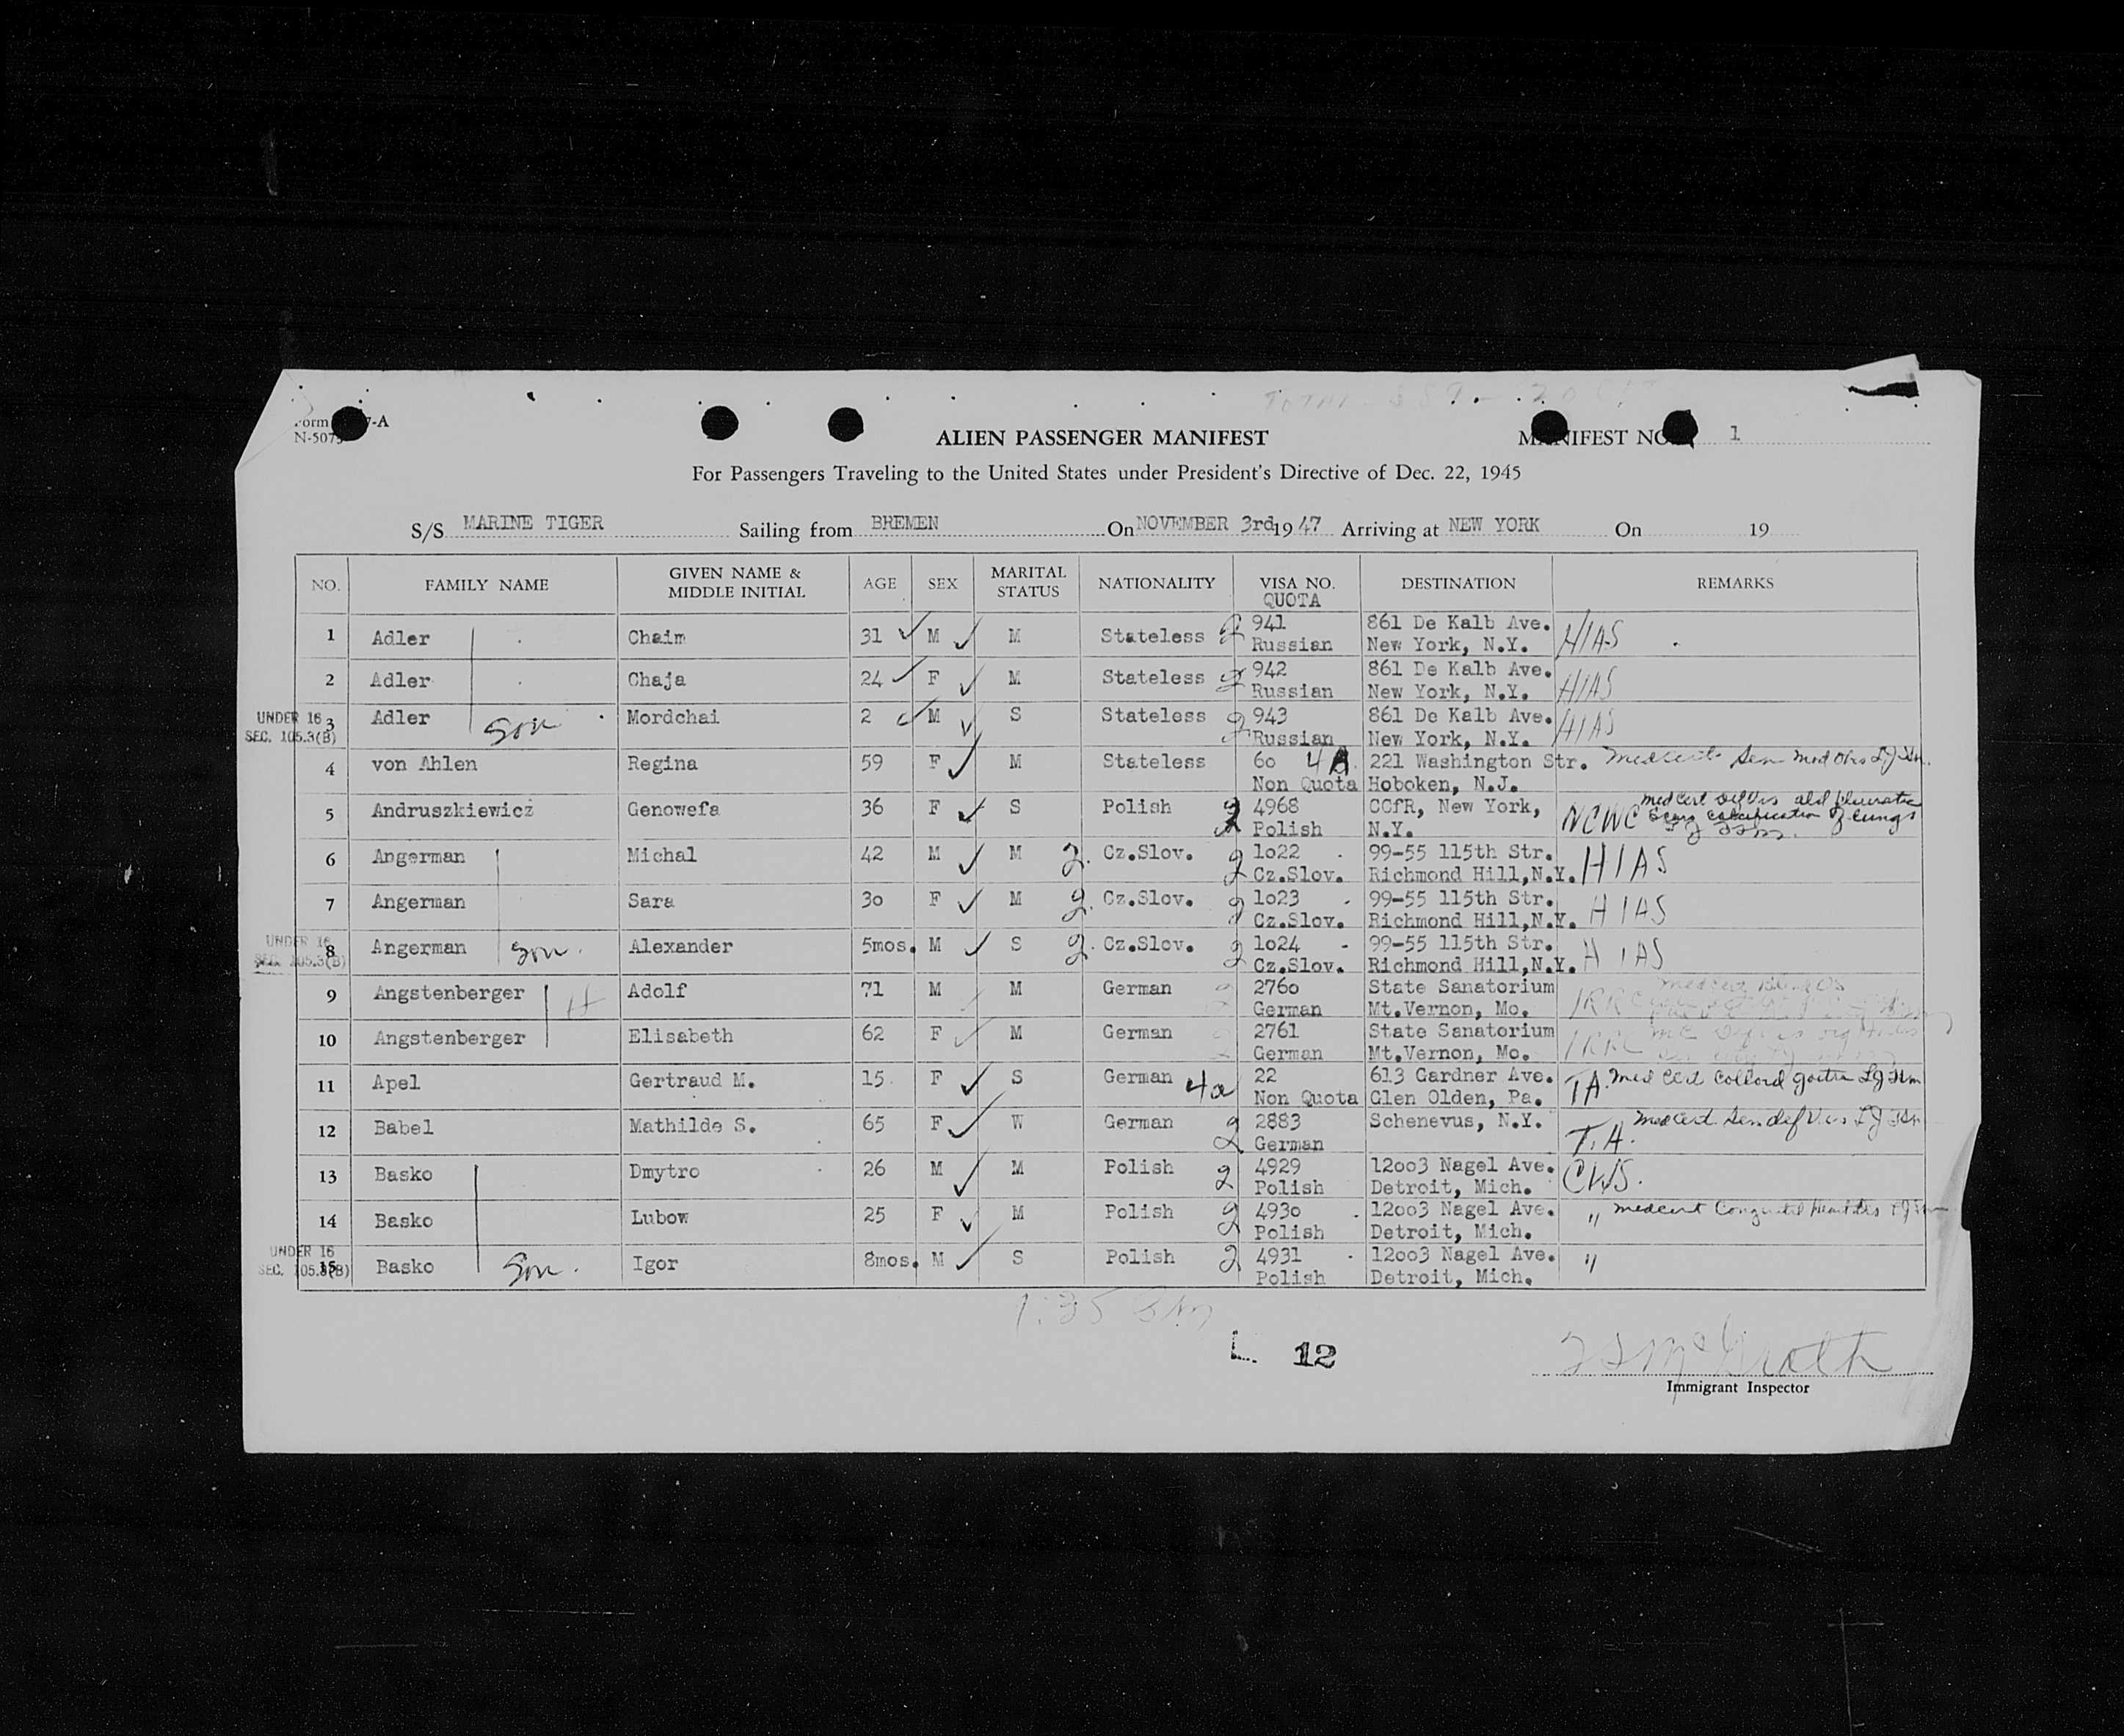 -A
N-507
ALIEN PASSENGER MANIFEST
MANIFEST NO. 1
For Passengers Traveling to the United States under President's Directive of Dec. 22, 1945
S/S MARINE TIGER Sailing from BREMEN On NOVEMBER 3rd 1947 Arriving at NEW YORK On 19
NO. FAMILY NAME GIVEN NAME & MIDDLE INITIAL AGE SEX MARITAL STATUS NATIONALITY VISA NO. QUOTA DESTINATION REMARKS
1 Adler Chaim 31 M M Stateless 2 941 861 De Kalb Ave. HIAS
Russian New York, N.Y.
2 Adler Chaja 24 F M Stateless 2 942 861 De Kalb Ave. HIAS
Russian New York, N.Y.
UNDER 16 3 Adler son Mordchai 2 M S Stateless 2 943 861 De Kalb Ave. HIAS
SEC. 105.3(B) Russian New York, N.Y.
4 von Ahlen Regina 59 F M Stateless 60 4A 221 Washington Str. Medcert Sen
Non Quota Hoboken, N.J.
5 Andruszkiewicz Genowefa 36 F S Polish 2 4968 CCfR, New York, NCWC Med Cert Def Vis old
Polish N.Y. Scars Calcification of lungs
6 Angerman Michal 42 M M 2. Cz.Slov. 2 1o22 99-55 115th Str. HIAS
Cz.Slov. Richmond Hill,N.Y.
7 Angerman Sara 3o F M 2. Cz.Slov. 2 1o23 99-55 115th Str. HIAS
Cz.Slov. Richmond Hill,N.Y.
UNDER 16 8 Angerman son. Alexander 5mos. M S 2. Cz.Slov. 2 1o24 99-55 115th Str. HIAS
SEC. 105.3(B) Cz.Slov. Richmond Hill,N.Y.
9 Angstenberger H Adolf 71 M M German 2 276o State Sanatorium IRRC
German Mt.Vernon, Mo.
10 Angstenberger Elisabeth 62 F M German 2 2761 State Sanatorium IRRC
German Mt.Vernon, Mo.
11 Apel Gertraud M. 15 F S German 4a 22 613 Gardner Ave. TA. Med Cert Colloid goitre
Non Quota Glen Olden, Pa.
12 Babel Mathilde S. 65 F W German 2 2883 Schenevus, N.Y. T.A. Medcert Sen def Vis
German
13 Basko Dmytro 26 M M Polish 2 4929 12oo3 Nagel Ave. CWS.
Polish Detroit, Mich.
14 Basko Lubow 25 F M Polish 2 493o 12oo3 Nagel Ave. " Medcert Congenital Heart Dis
Polish Detroit, Mich.
UNDER 16 15 Basko Son. Igor 8mos. M S Polish 2 4931 12oo3 Nagel Ave. "
SEC. 105.3(B) Polish Detroit, Mich.
L 12
McGrath
Immigrant Inspector